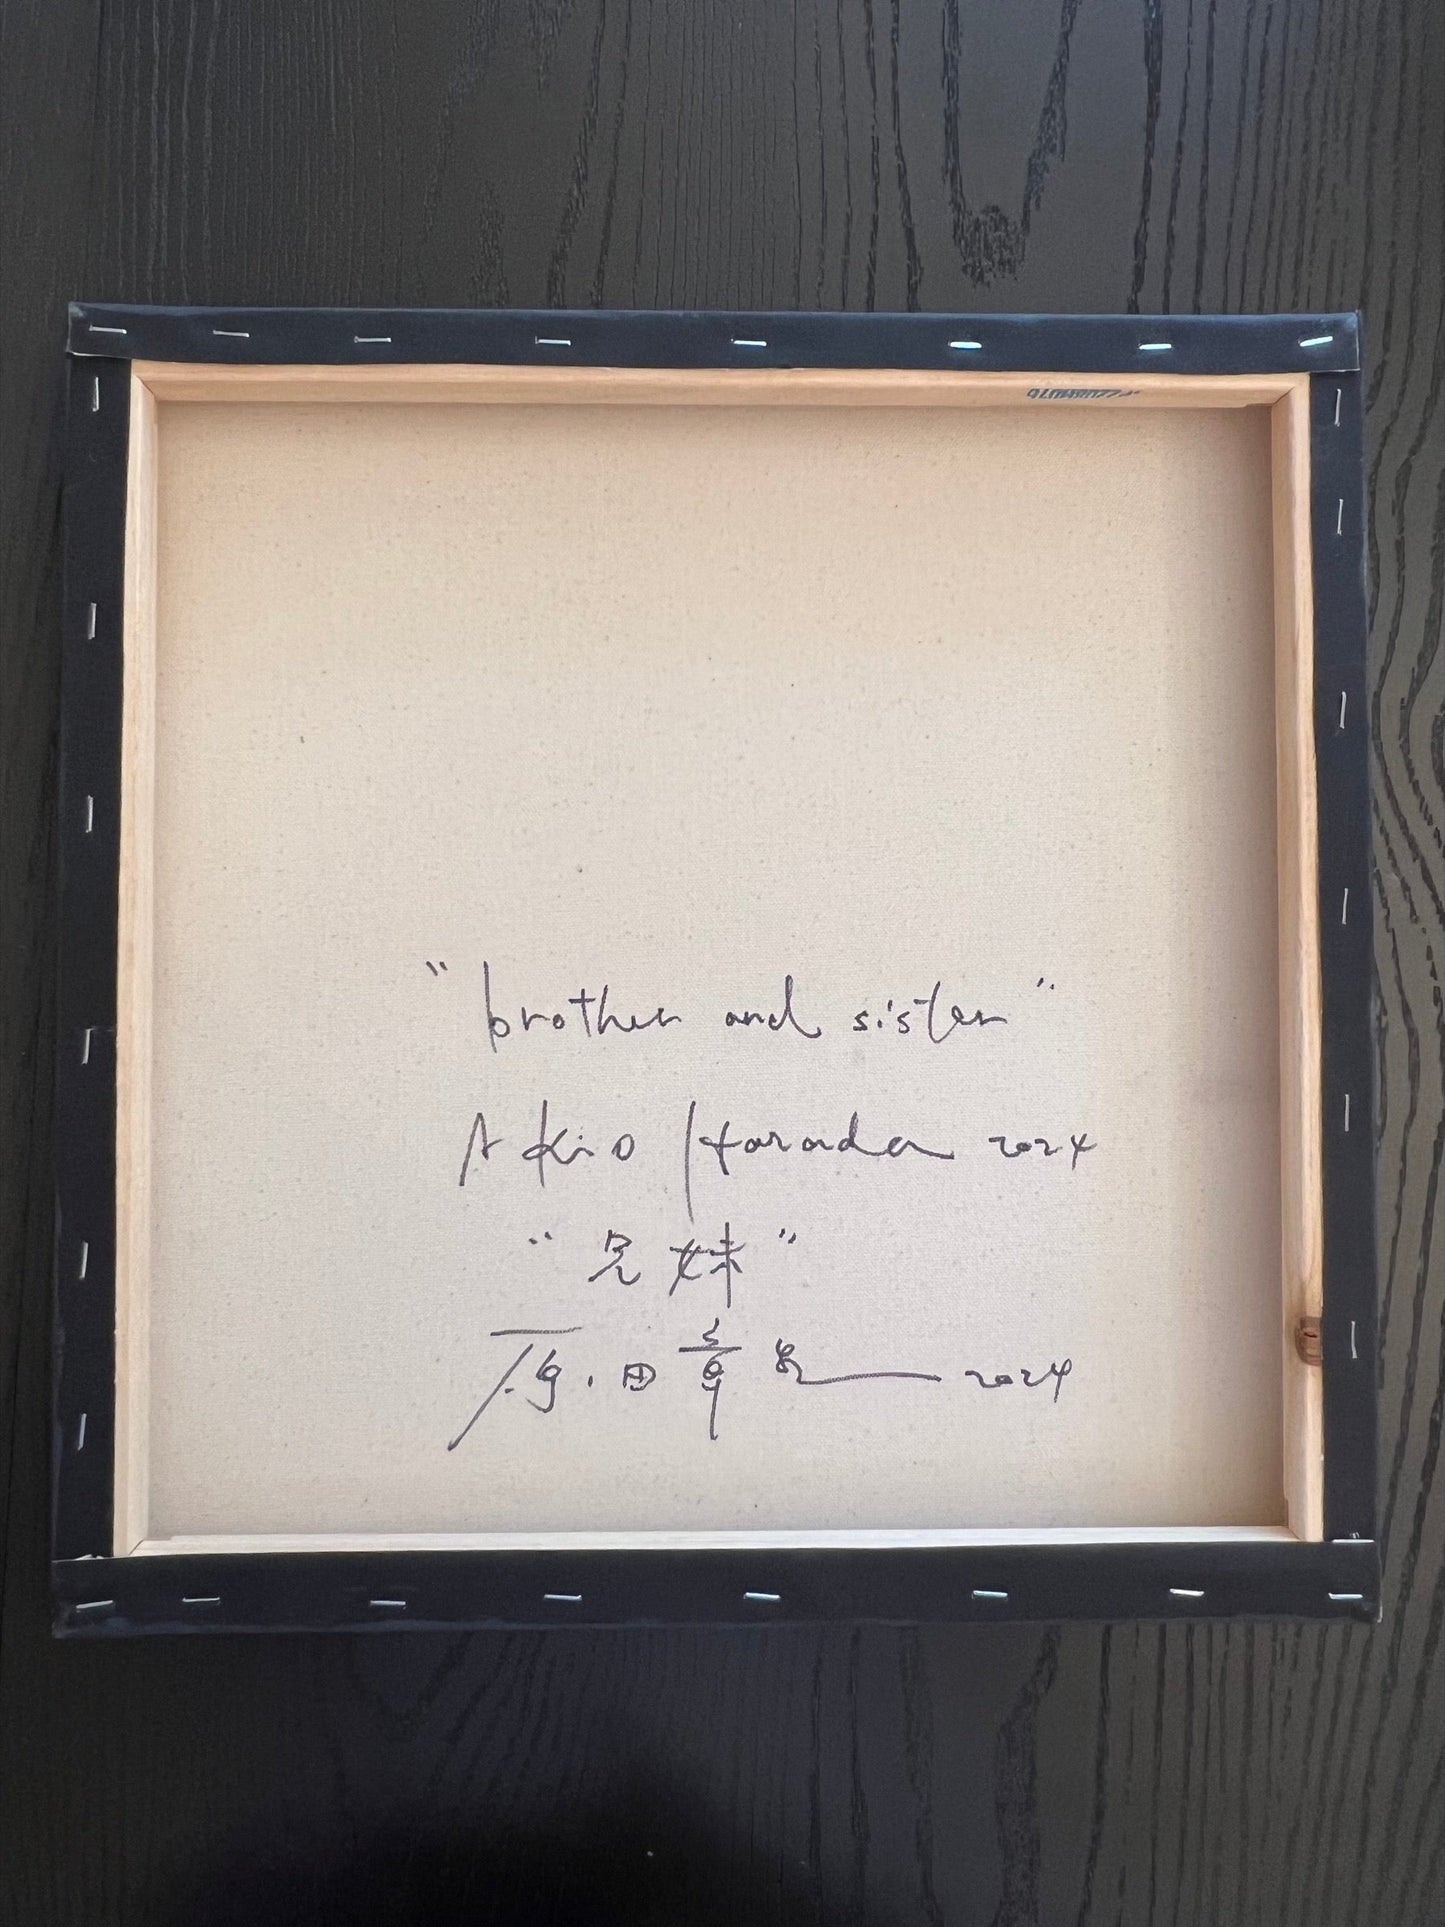 "brother and sister"
Akio Harada 2024
"兄妹"
原田章 2024